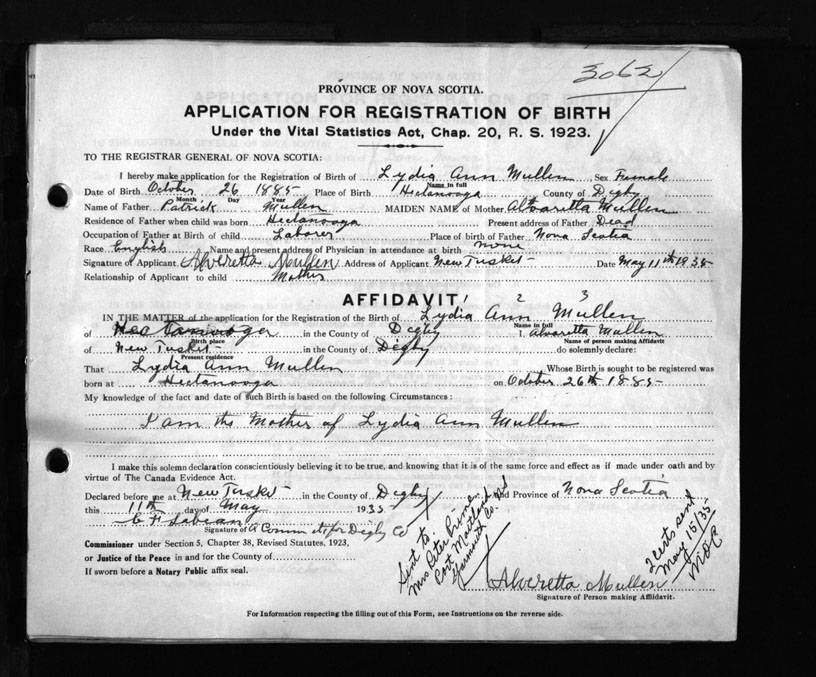 3062
PROVINCE OF NOVA SCOTIA.
APPLICATION FOR REGISTRATION OF BIRTH
Under the Vital Statistics Act, Chap. 20, R. S. 1923.
TO THE REGISTRAR GENERAL OF NOVA SCOTIA:
I hereby make application for the Registration of Birth of Lydia Ann Mullen Sex Female
Name in full
Date of Birth October 26 1885 Place of Birth Hectanooga County of Digby
Month Day Year
Name of Father Patrick Mullen MAIDEN NAME of Mother Alvaretta Mullen
Residence of Father when child was born Hectanooga Present address of Father Dead
Occupation of Father at Birth of child Laborer Place of birth of Father Nova Scotia
Race English Name and present address of Physician in attendance at birth none
Signature of Applicant Alveretta Mullen Address of Applicant New Tusket Date May 11th 1935
Relationship of Applicant to child Mother
AFFIDAVIT
1 2 3
IN THE MATTER of the application for the Registration of Birth of Lydia Ann Mullen
Name in full
of in the County of Digby I, Alvaretta Mullen
Birth place Name of person making Affidavit
of New Tusket in the County of Digby do solemnly declare:
Present residence
That Lydia Ann Mullen Whose Birth is sought to be registered was
born at Hectanooga on October 26th 1885
My knowledge of the fact and date of such Birth is based on the following Circumstances:
I am the Mother of Lydia Ann Mullen
I make this solemn declaration conscientiously believing it to be true, and knowing that it is of the same force and effect as if made under oath and by
virtue of The Canada Evidence Act.
Declared before me at New Tusket in the County of Digby and Province of Nova Scotia
this 11th day of May 1935
Signature of A Commr for Digby Co
Commissioner under Section 5, Chapter 38, Revised Statutes, 1923,
or Justice of the Peace in and for the County of
If sworn before a Notary Public affix seal.
Sent to
Mrs Peter
Port Maitland
Yarmouth Co. NS
2 certs send
May 15/35
Alveretta Mullen
Signature of Person making Affidavit.
For Information respecting the filling out of this Form, see Instructions on the reverse side.